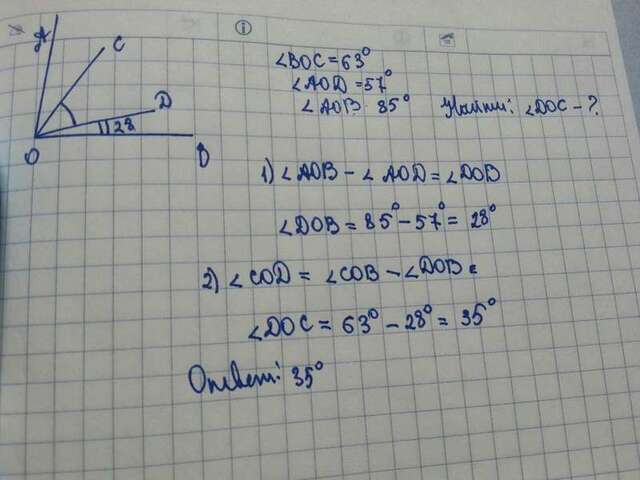 A
C
D
28
O
B
∠BOC = 63°
∠AOD = 57°
∠AOB 85° Найти: ∠DOC - ?
1) ∠AOB - ∠AOD = ∠DOB
∠DOB = 85° - 57° = 28°
2) ∠COD = ∠COB - ∠DOB =
∠DOC = 63° - 28° = 35°
Ответ: 35°